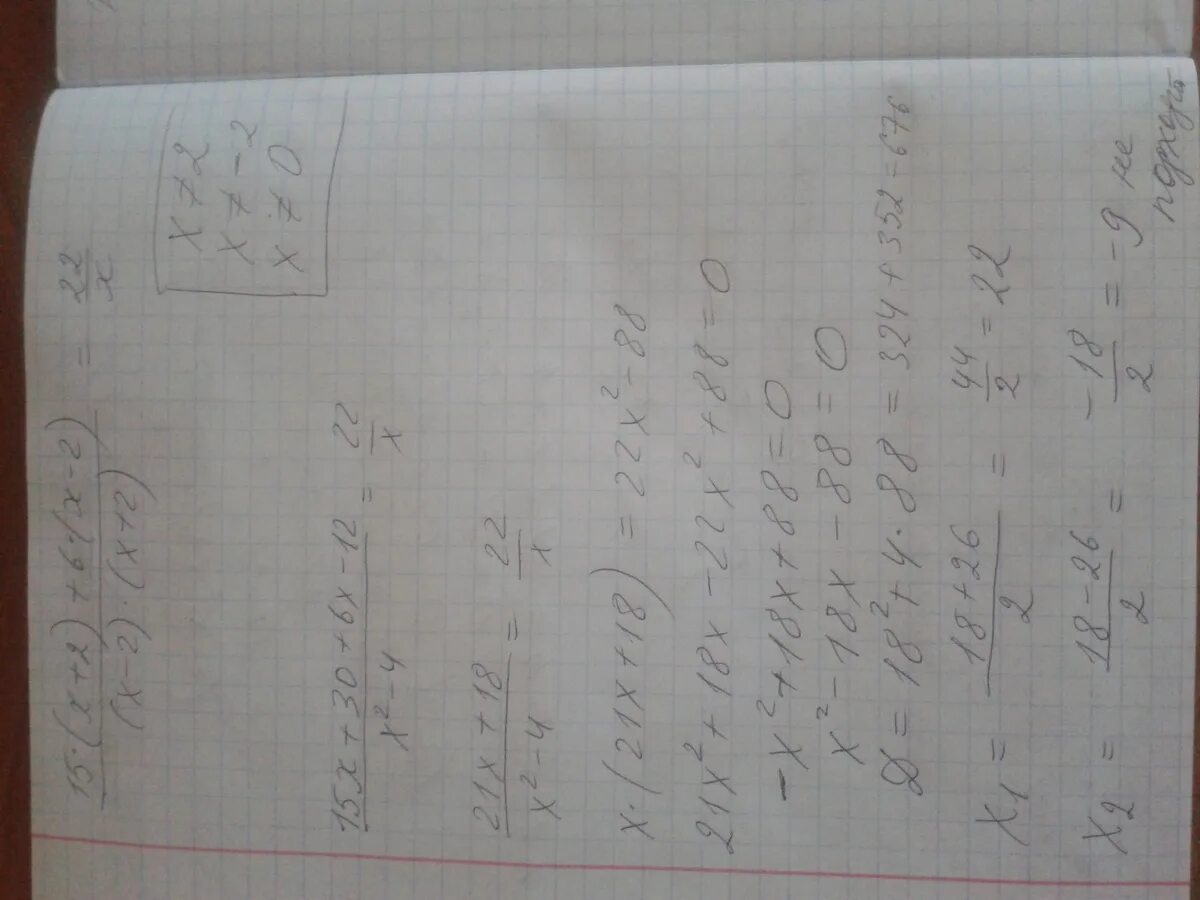 15·(x+2)+6·(x-2)/(x-2)·(x+2) = 22/x
x≠2
x≠-2
x≠0
15x+30+6x-12/x²-4 = 22/x
21x+18/x²-4 = 22/x
x·(21x+18)=22x²-88
21x²+18x-22x²+88=0
-x²+18x+88=0
x²-18x-88=0
D=18²+4·88=324+352=676
x₁=18+26/2=44/2=22
x₂=18-26/2=-18/2=-9 не
подходит